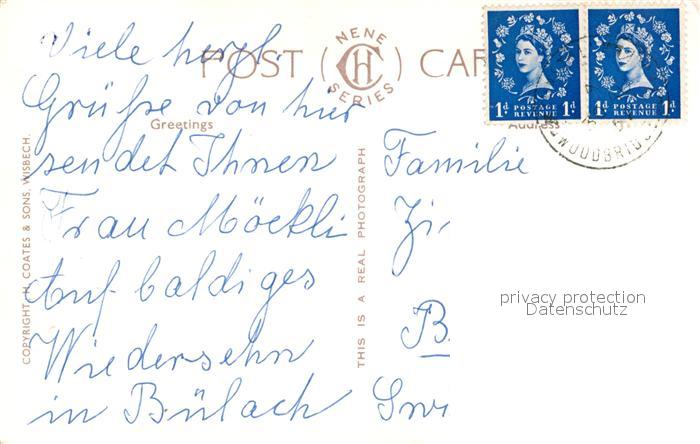 POST CAR
NENE SERIES
CH
1d POSTAGE REVENUE 1d
1d POSTAGE REVENUE 1d
WOODBRIDG
Greetings
Address
Viele herzl.
Grüße von hier
sendet Ihnen
Frau Möckli
Auf baldiges
Wiedersehn
in Bülach
COPYRIGHT, H. COATES & SONS, WISBECH.
THIS IS A REAL PHOTOGRAPH
Familie
Zi
B
privacy protection
Datenschutz